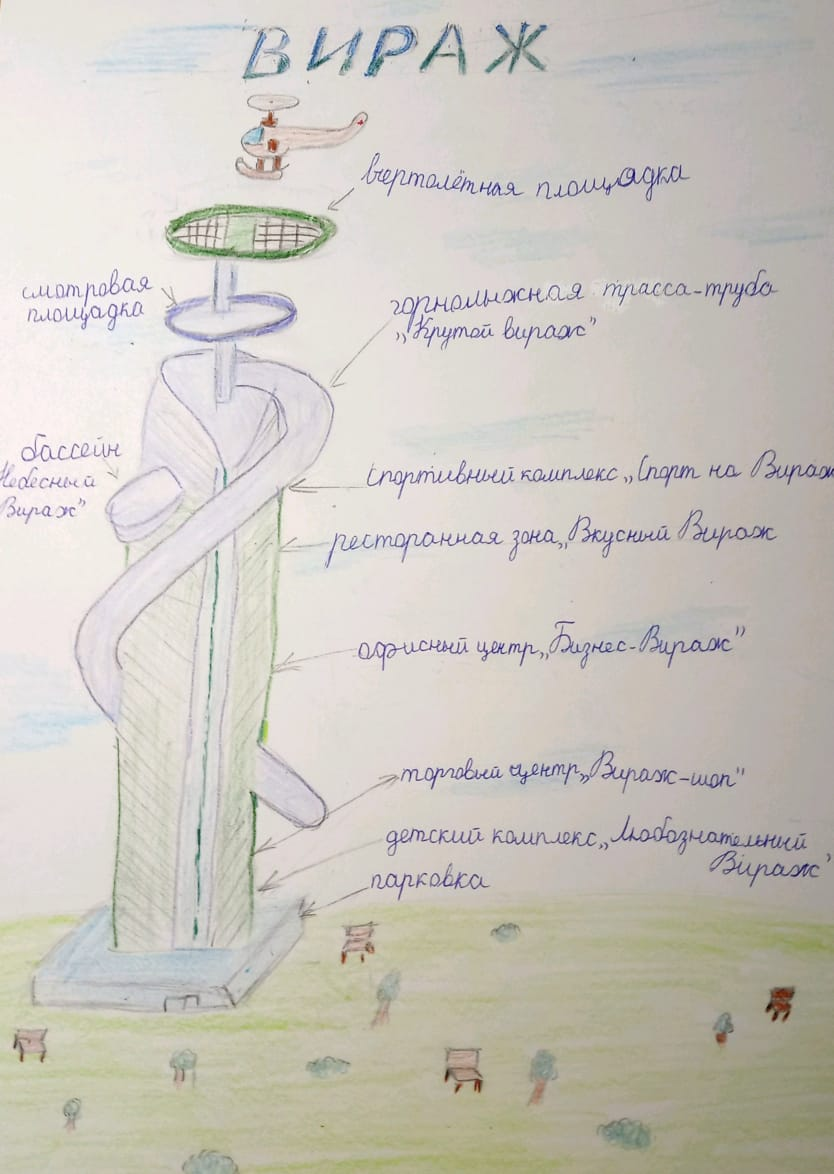 ВИРАЖ
вертолётная площадка
смотровая
площадка
горнолыжная трасса-труба
„Крутой вираж"
бассейн
Небесный
Вираж"
спортивный комплекс „Спорт на Вираж
ресторанная зона „Вкусный Вираж
офисный центр „Бизнес-Вираж"
торговый центр „Вираж-шоп"
детский комплекс „Любознательный
Вираж"
парковка